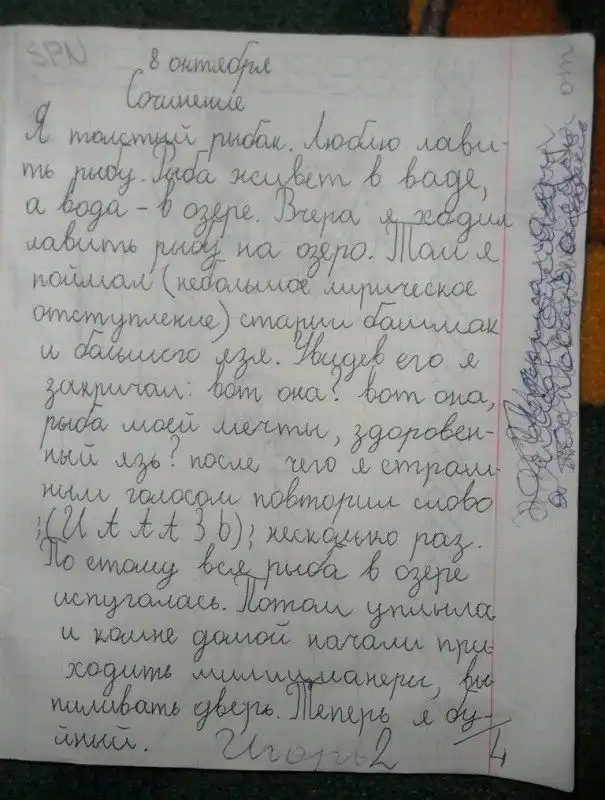 SPN
8 октября
Сочинение
Я толстый рыбак. Люблю лави-
ть рыбу. Рыба живет в ваде,
а вода - в озере. Вчера я ходил
лавить рыбу на озеро. Там я
поймал (небольшое лирическое
отступление) старии башмак
и большого язя. Увидев его я
закричал: вот она? вот она,
рыба моей мечты, здоровен-
ный язь? после чего я страш-
ным голосом повторил слово
;(И А А А З Ь); несколько раз.
По етому вся рыба в озере
испугалась. Потом уплыла
и комне домой начали при
ходить милицианеры, вы
пиливать дверь. Теперь я бу-
йный.
Игорь 2/4
от